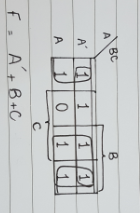 A\BC B
A' 1 1 1 1
A 1 0 1 1
C
f = A' + B + C